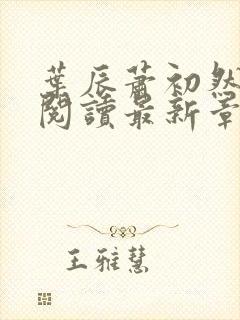 葉辰蕭初然
閱讀最新章
王雅慧